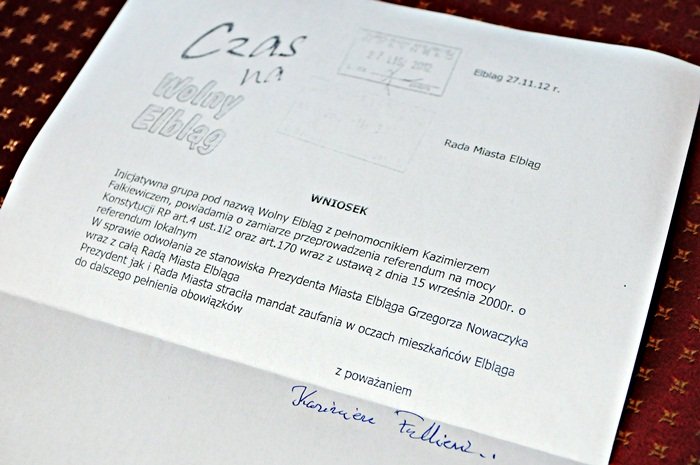 Czas
na
Wolny
Elbląg
27 LIS. 2012
Elbląg 27.11.12 r.
Rada Miasta Elbląg
WNIOSEK
Inicjatywna grupa pod nazwą Wolny Elbląg z pełnomocnikiem Kazimierzem
Falkiewiczem, powiadamia o zamiarze przeprowadzenia referendum na mocy
Konstytucji RP art.4 ust.1i2 oraz art.170 wraz z ustawą z dnia 15 września 2000r. o
referendum lokalnym
W sprawie odwołania ze stanowiska Prezydenta Miasta Elbląga Grzegorza Nowaczyka
wraz z całą Radą Miasta Elbląga
Prezydent jak i Rada Miasta straciła mandat zaufania w oczach mieszkańców Elbląga
do dalszego pełnienia obowiązków
z poważaniem
Kazimierz